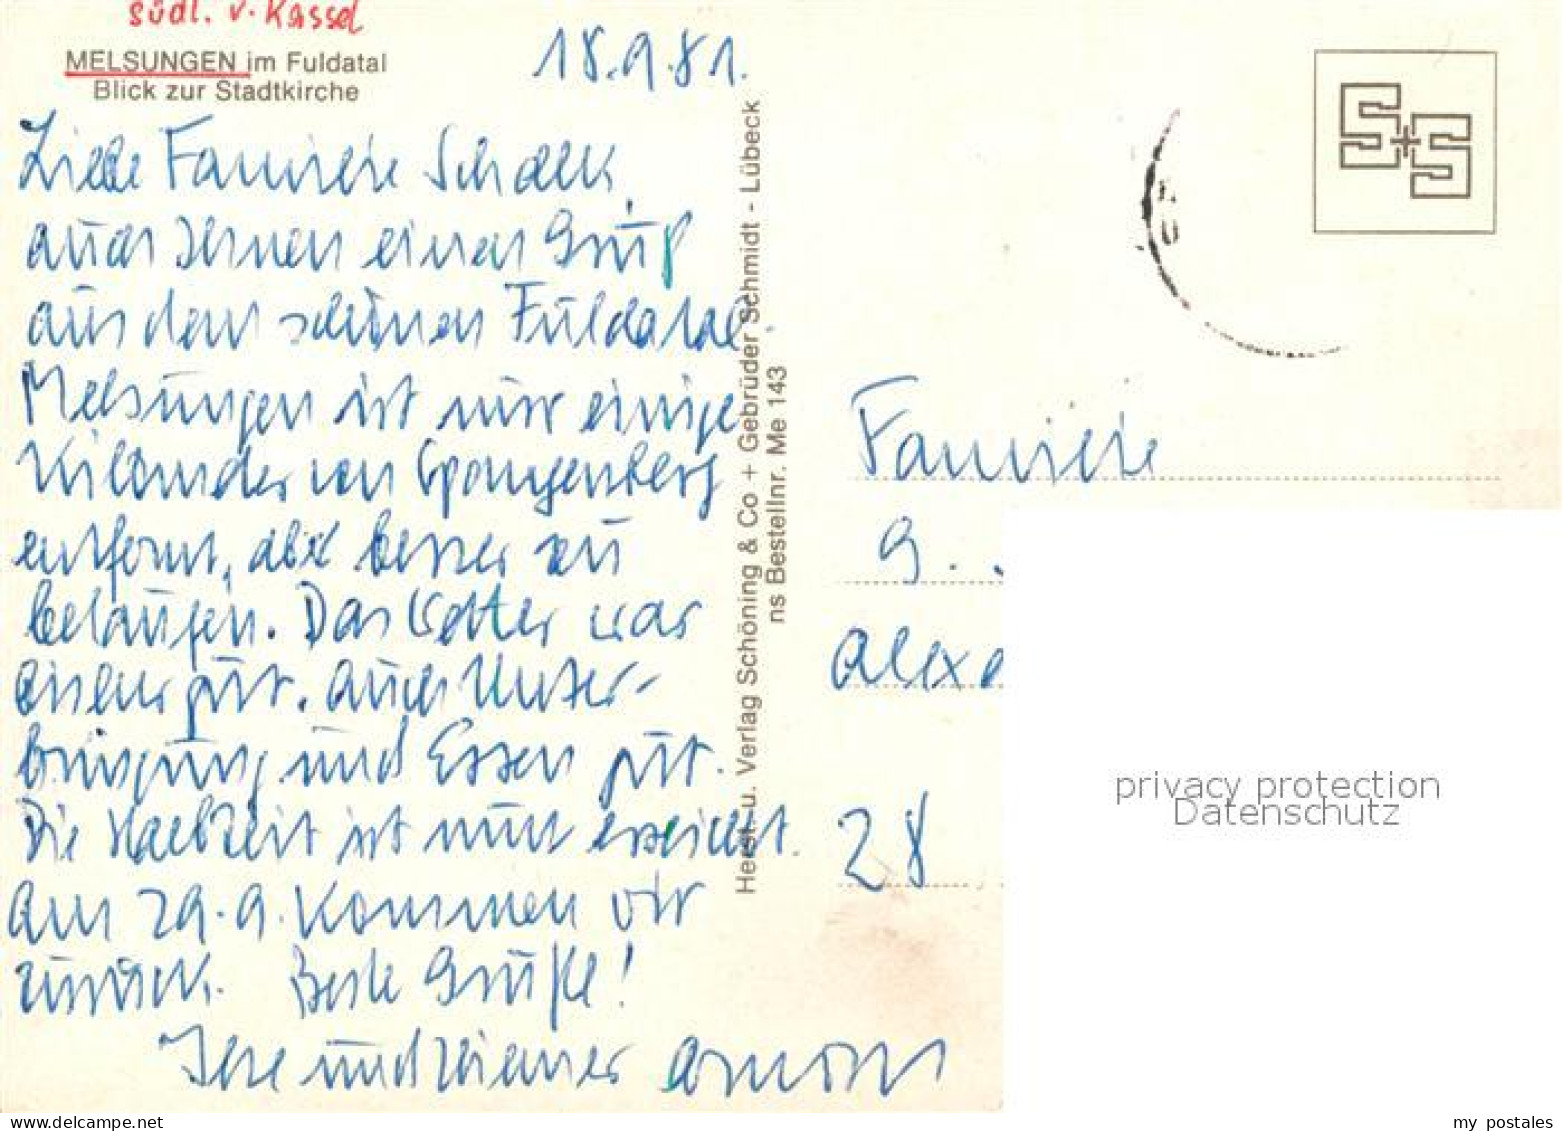 südl. v. Kassel
MELSUNGEN im Fuldatal
Blick zur Stadtkirche
18.9.81.
Liebe Familie Schalk,
auch Ihnen einen Gruß
aus dem schönen Fuldatal.
Melsungen ist nur einige
Kilometer von Spangenberg
entfernt, aber besser zu
belaufen. Das Wetter war
bisher gut. Auch Unter-
bringung und Essen gut.
Die Halbzeit ist nun erreicht.
Am 29.9. kommen wir
zurück. Beste Grüße!
Ihre und Werner
Herst. u. Verlag Schöning & Co + Gebrüder Schmidt - Lübeck
ns Bestellnr. Me 143
S+S
Familie
G.
Alexa
28
privacy protection
Datenschutz
my_postales